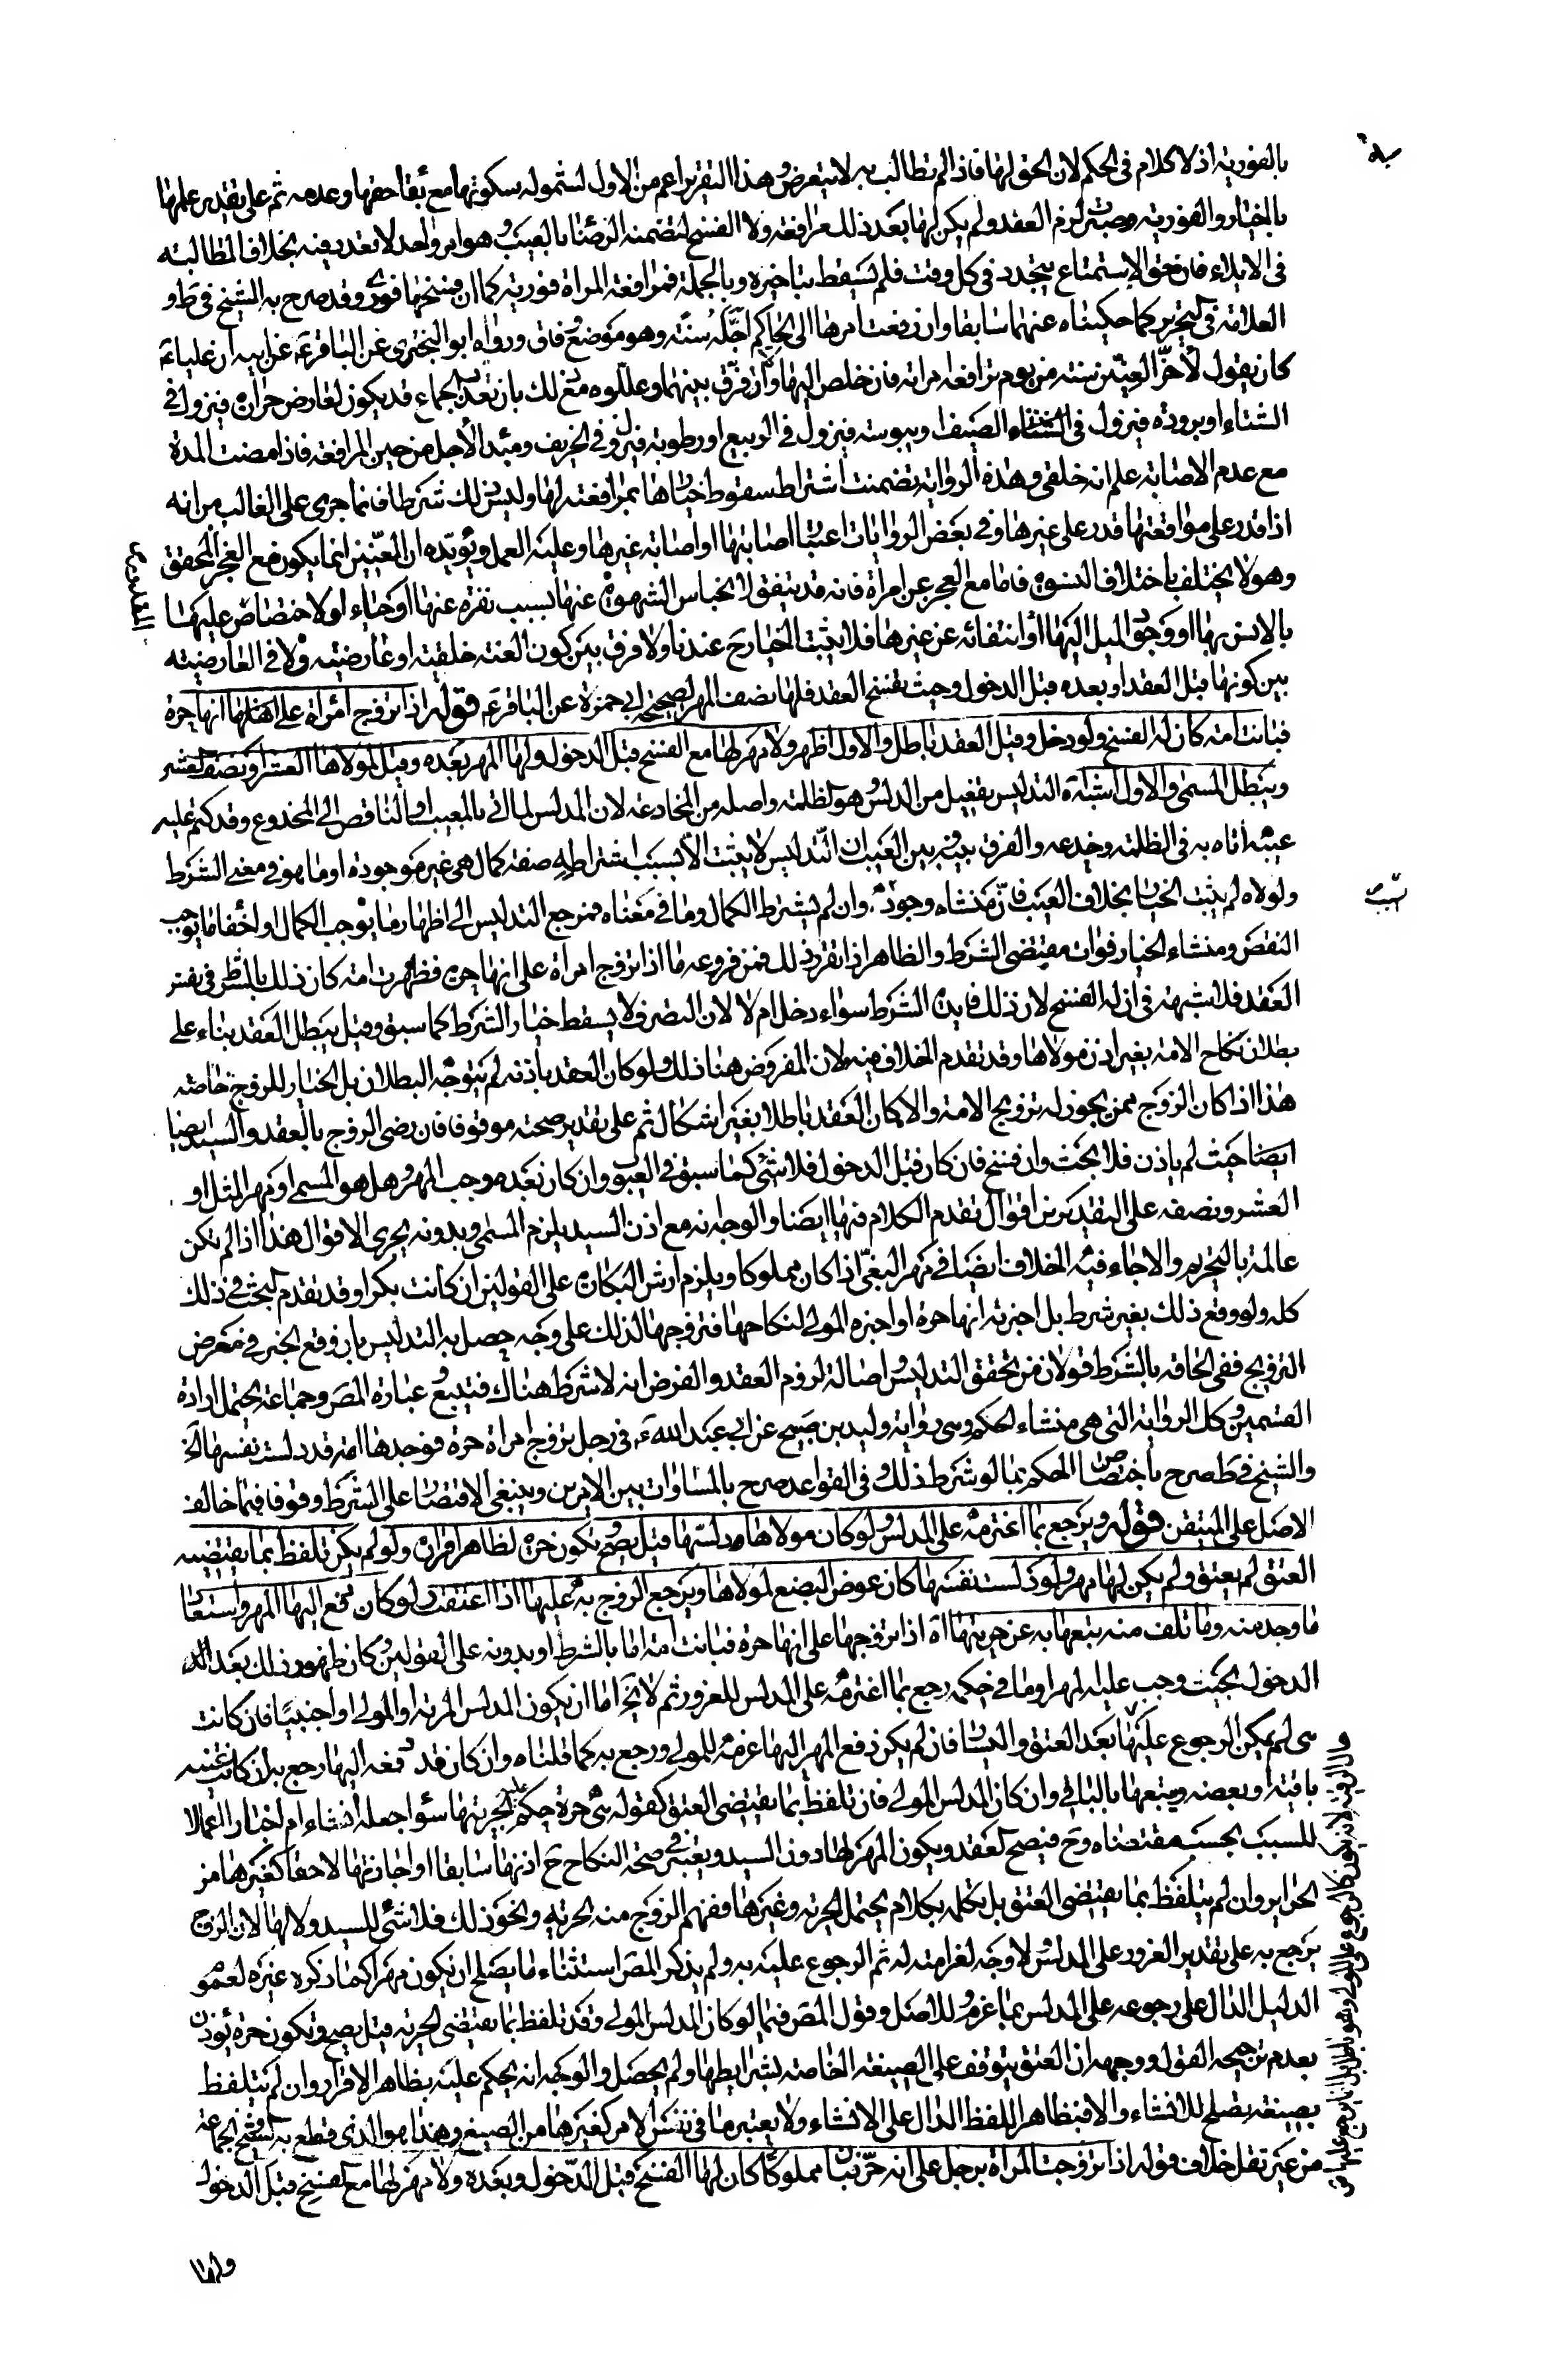 بالفورية اذ لا كلام فى الحكم لان الحق لها فاذا لم تطالب به لا يتعرض وهذا التقرير اعم من الاول لشموله سكوتها مع بقاء حقها وعدمه ثم على تقدير علمها
بالخيار والفورية وصبرت لزم العقد ولم يكن لها بعد ذلك مرافعة ولا الفسخ لتضمنه الرضا بالعيب وهو امر واحد لا تعدد فيه بخلاف المطالبة
فى الايلاء فان حق الاستمتاع يتجدد فى كل وقت فلم يسقط بتاخيره وبالجملة فمرافعة المراة فورية كما ان فسخها فورى وقد صرح به الشيخ فى ط و
العلامة فى التحرير كما حكيناه عنهما سابقا وان رفعت امرها الى الحاكم اجله سنة وهو موضع وفاق ورواه ابو البخترى عن الباقر ع عن ابيه ان عليا ع
كان يقول لاخر العنين سنة من يوم ترافعه امراته فان خلص اليها والا فرق بينهما وعللوه مع ذلك بان تعذر الجماع قد يكون لعارض حرارة فيزول فى
الشتاء او برودة فيزول فى الصيف او يبوسة فيزول فى الربيع او رطوبة فيزول فى الخريف ومبدا الاجل من حين المرافعة فاذا مضت المدة
مع عدم الاصابة علم انه خلقى وهذه الرواية تضمنت اشتراط سقوط خيارها بمرافعته لها وليس ذلك شرطا فانما جرى على الغالب من انه
اذا قدر على مواقعتها قدر على غيرها وفى بعض الروايات اعتبار اصابتها او اصابة غيرها وعليه العمل ويؤيده ان التعنين انما يكون مع العجز المحقق
وهو لا يختلف باختلاف النسوة فاما مع العجز عن امراة فانه قد يتفق لانحباس الشهوة عنها بسبب نفرة عنها او حياء او لاختصاص عليها
بالانس بها او وجود الميل اليها او انتفائه عن غيرها فلا يثبت الخيار ح عندنا ولا فرق بين كون العنة خلقية او عارضية ولا فى العارضية
بين كونها قبل العقد او بعده قبل الدخول وحيث تفسخ العقد فلها نصف المهر لصحيحة ابى حمزة عن الباقر ع قوله اذا تزوج امراة على انها حرة
فبانت امة كان له الفسخ ولو دخل وقيل العقد باطل والاول اظهر ولا مهر لها مع الفسخ قبل الدخول ولها المهر بعده وقيل لمولاها العشر او نصف العشر
ويبطل المسمى والاول اشبه آه التدليس تفعيل من الدلس وهو الظلمة واصله من المخادعة لان المدلس لما اتى بالمعيب او الناقص الى المخدوع وقد كتم عليه
عيبه اتاه به فى الظلمة وخدعه والفرق بينه وبين العيب ان التدليس لا يثبت الا بسبب اشتراطه صفة كمال هى غير موجودة او ما هو فى معنى الشرط
ولولاه لم يثبت الخيار بخلاف العيب فان منشاه وجوده وان لم يشترط الكمال وما فى معناه فمرجع التدليس الى اظهار ما يوجب الكمال او اخفاء ما يوجب
النقص ومنشاء الخيار فوات مقتضى الشرط والظاهر اذا تقرر ذلك فمن فروعه ما اذا تزوج امراة على انها حرة فظهرت امة كان ذلك بالشرط فى نفس
العقد فلا شبهة فى ان له الفسخ لان ذلك فايدة الشرط سواء دخل ام لا لان التصرف لا يسقط خيار الشرط كما سبق وقيل يبطل العقد بناء على
بطلان نكاح الامة بغير اذن مولاها وقد تقدم الخلاف فيه لان المفروض هنا ذلك ولو كان العقد باذنه لم يتوجه البطلان بل الخيار للزوج خاصة
هذا اذا كان الزوج ممن يجوز له تزويج الامة والا كان العقد باطلا بغير اشكال ثم على تقدير صحته موقوفا فان رضى الزوج بالعقد والسيد ايضا
ايضا حيث لم ياذن فلا بحث وان فسخ فان كان قبل الدخول فلا شئ كما سبق فى العيوب وان كان بعده وجب المهر وهل هو المسمى او مهر المثل او
العشر ونصفه على التقديرين اقوال تقدم الكلام فيها ايضا والوجه انه مع اذن السيد يلزم المسمى وبدونه يجرى الاقوال هذا اذا لم تكن
عالمة بالتحريم والا جاء فيه الخلاف ايضا فى مهر البغى اذا كان مملوكا ويلزم ارش البكارة على القولين ان كانت بكرا وقد تقدم البحث فى ذلك
كله ولو وقع ذلك بغير شرط بل اخبرته انها حرة او اخبره المولى لنكاحها فتزوجها لذلك على وجه حصل به التدليس بان وقع الخبر فى معرض
التزويج ففى الحاقه بالشرط قولان من تحقق التدليس واصالة لزوم العقد والفرض انه لا شرط هناك عبارة المص وجماعة يحتمل ارادة
القسمين وكل الرواية التى هى منشاء الحكم وهى رواية وليد بن صبيح عن ابى عبد الله ع فى رجل تزوج امراة حرة فوجدها امة قد دلست نفسها الخ
والشيخ فى ط صرح باختصاص الحكم بما لو شرط ذلك وفى القواعد صرح بالمساوات بين الامرين وينبغى الاقتصار على الشرط وقوفا فيما خالف
الاصل على المتيقن قوله ويرجع بما اغترمه على المدلس ولو كان مولاها مدلسها قيل يصح وتكون حرة لظاهر اقراره ولو لم يكن تلفظ بما يقتضيه
العتق لم يعتق ولم يكن لها مهر ولو دلست نفسها كان عوض البضع لمولاها ويرجع الزوج به عليها اذا اعتقت ولو كان دفع اليها المهر استعاد
ما وجد منه وما تلف منه يتبعها به عن حريتها آه اذا تزوجها على انها حرة فبانت امة اما بالشرط او بدونه على القولين وكان ظهور ذلك بعد
الدخول بحيث وجب عليه المهر او ما فى حكمه رجع بما اغترمه على المدلس للغرور ثم لا يخ اما ان يكون المدلس المرئة او المولى او اجنبيا فان كانت
هى لم يمكن الرجوع عليها بعد العتق واليسار فان لم يكن دفع المهر اليها غرمه للمولى ورجع به كما قلناه وان كان قد دفعه اليها رجع به ان كانت عينه
باقية او بعضه ويتبعها بالباقى وان كان المدلس المولى فان تلفظ بما يقتضى العتق كقوله هى حرة حكم عليه بحريتها سواء جعله انشاء ام اخبارا اعمالا
للسبب بحسب مقتضاه وح فيصح العقد ويكون المهر لها دون السيد ويعتبر فى صحة النكاح ح اذنها سابقا او اجازتها لاحقا كغيرها من
الحراير وان لم يتلفظ بما يقتضى العتق بل تكلم بكلام يحتمل الحرية وغيرها ففهم الزوج منه الحرية ونحو ذلك فلا شئ للسيد ولا لها لان الزوج
يرجع به على تقدير الغرور على المدلس ولا وجه لغرامته له ثم الرجوع عليه به ولم يذكر المص استثناء ما يصلح ان يكون مهرا كما ذكره غيره لعموم
الدليل الدال على رجوعه على المدلس بما غرم وللاصل وقول المص فيما لو كان المدلس المولى وقد تلفظ بما يقتضى الحرية قيل يصح وتكون حرة يؤذن
بعدم ترجيحه القول ووجهه ان العتق يتوقف على الصيغة الخاصة بشرايطها ولم يحصل والوجه انه يحكم عليه بظاهر الاقرار وان لم يتلفظ
بصيغة يصلح للانشاء والا فبظاهر اللفظ الدال على الانشاء ولا يعتبر ما فى نفس الامر كغيرها من الصيغ وهذا هو الذى قطع به الشيخ وجماعة
من غير نقل خلاف قوله اذا تزوجت المراة برجل على انه حر فبان مملوكا كان لها الفسخ قبل الدخول وبعده ولا مهر لها مع الفسخ قبل الدخول